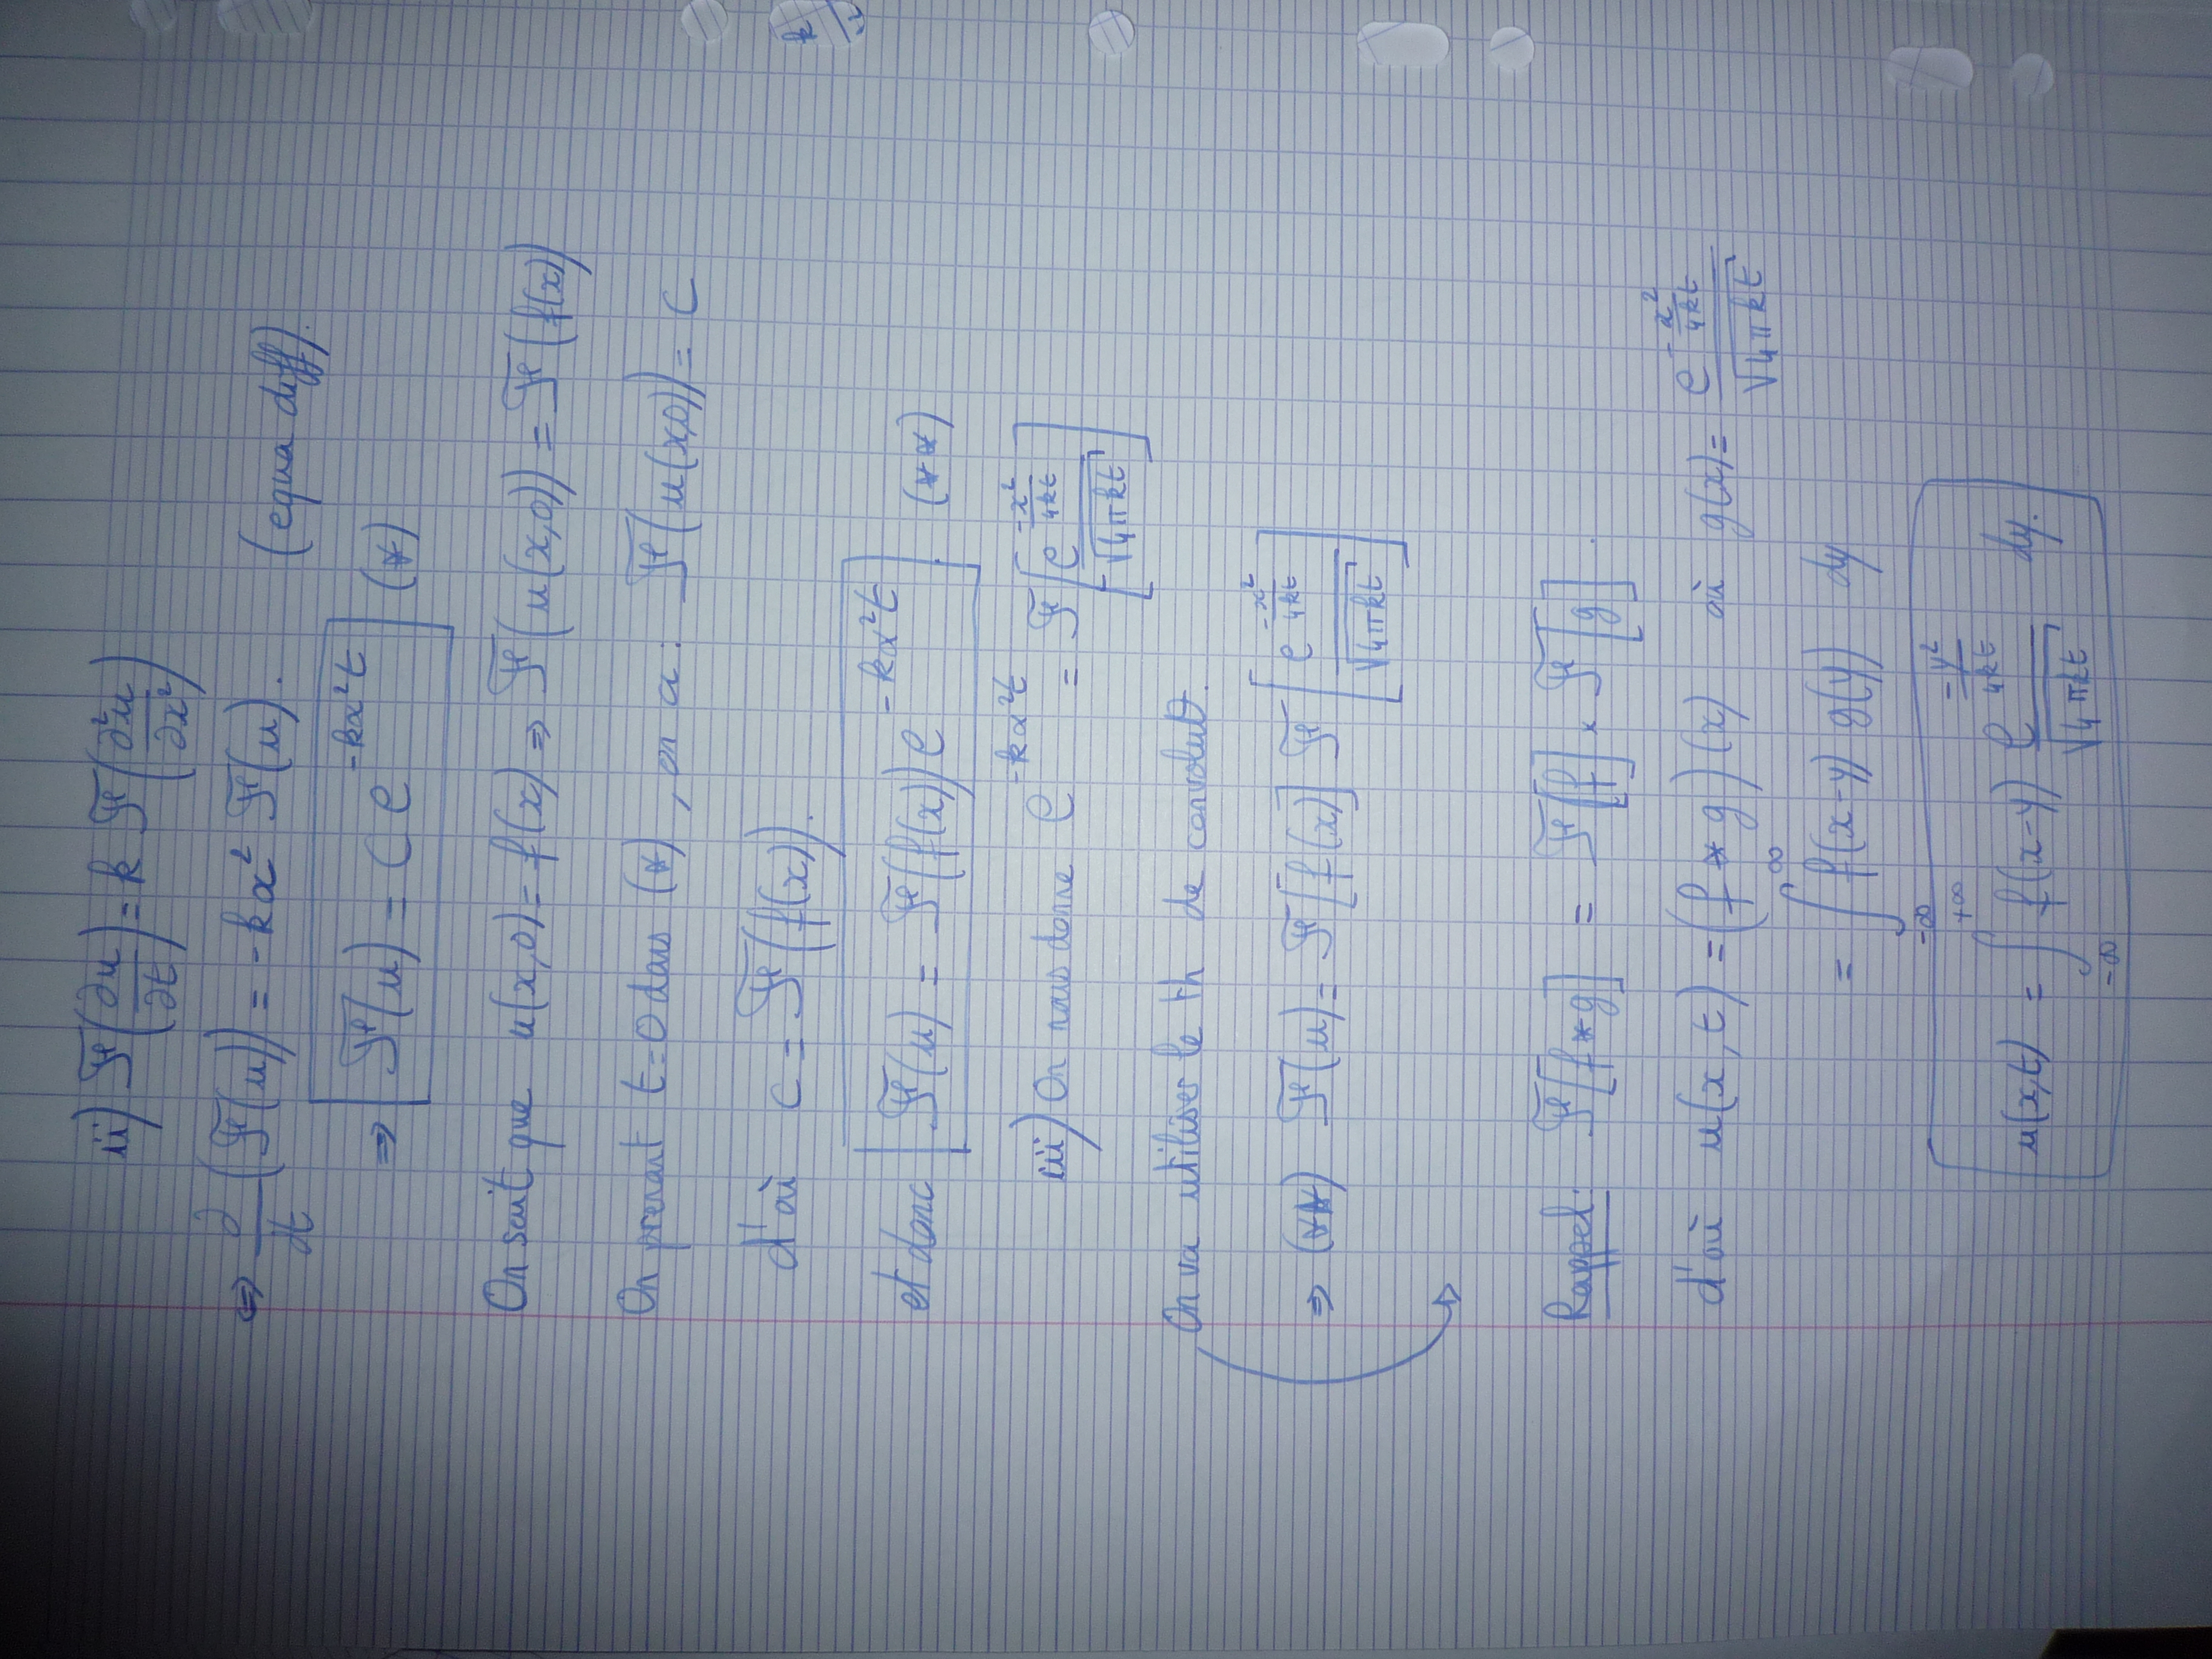 ii) ℱ(∂u/∂t) = k ℱ(∂²u/∂x²)
⇔ ∂/∂t (ℱ(u)) = -kα² ℱ(u). (equa diff).
⇒ ℱ(u) = C e^{-kα²t} (*)
On sait que u(x,0) = f(x) ⇒ ℱ(u(x,0)) = ℱ(f(x))
On prenant t=0 dans (*), on a: ℱ(u(x,0)) = C
d'où C = ℱ(f(x)).
et donc ℱ(u) = ℱ(f(x)) e^{-kα²t}. (**)
iii) On nous donne e^{-kα²t} = ℱ[e^{-x²/4kt}/√4πkt]
On va utiliser le th de convolut.
⇒ (**) ℱ(u) = ℱ[f(x)] ℱ[e^{-x²/4kt}/√4πkt]
Rappel: ℱ[f*g] = ℱ[f] × ℱ[g].
d'où u(x,t) = (f*g)(x) où g(x) = e^{-x²/4kt}/√4πkt
= ∫_{-∞}^{∞} f(x-y) g(y) dy
u(x,t) = ∫_{-∞}^{+∞} f(x-y) e^{-y²/4kt}/√4πkt dy.